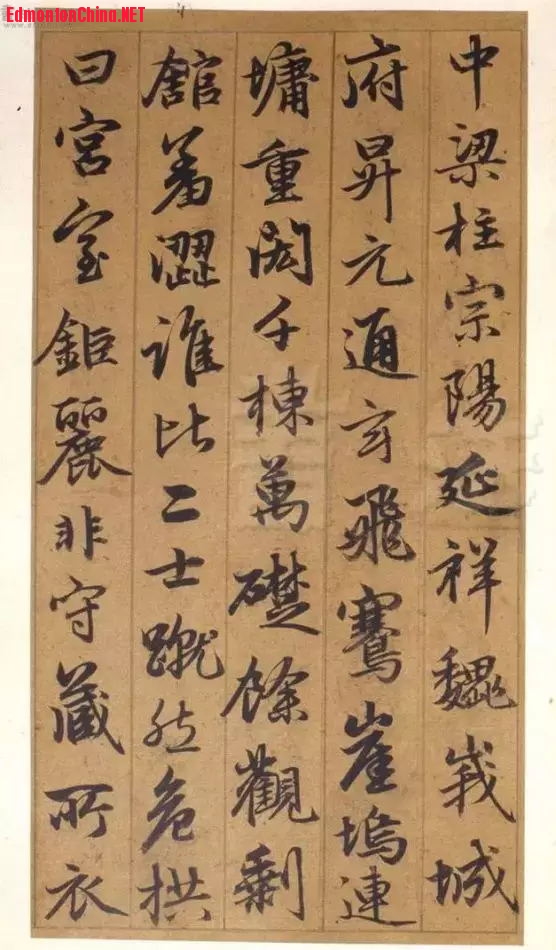 EdmontonChina.NET
中梁柱宗陽延祥魏峩城
府昇元通玄飛鶱崖塢連
墉重閎千棟萬礎餘觀剩
舘羞澀誰比二士蹴然危拱
曰宮室鉅麗非守藏所衣